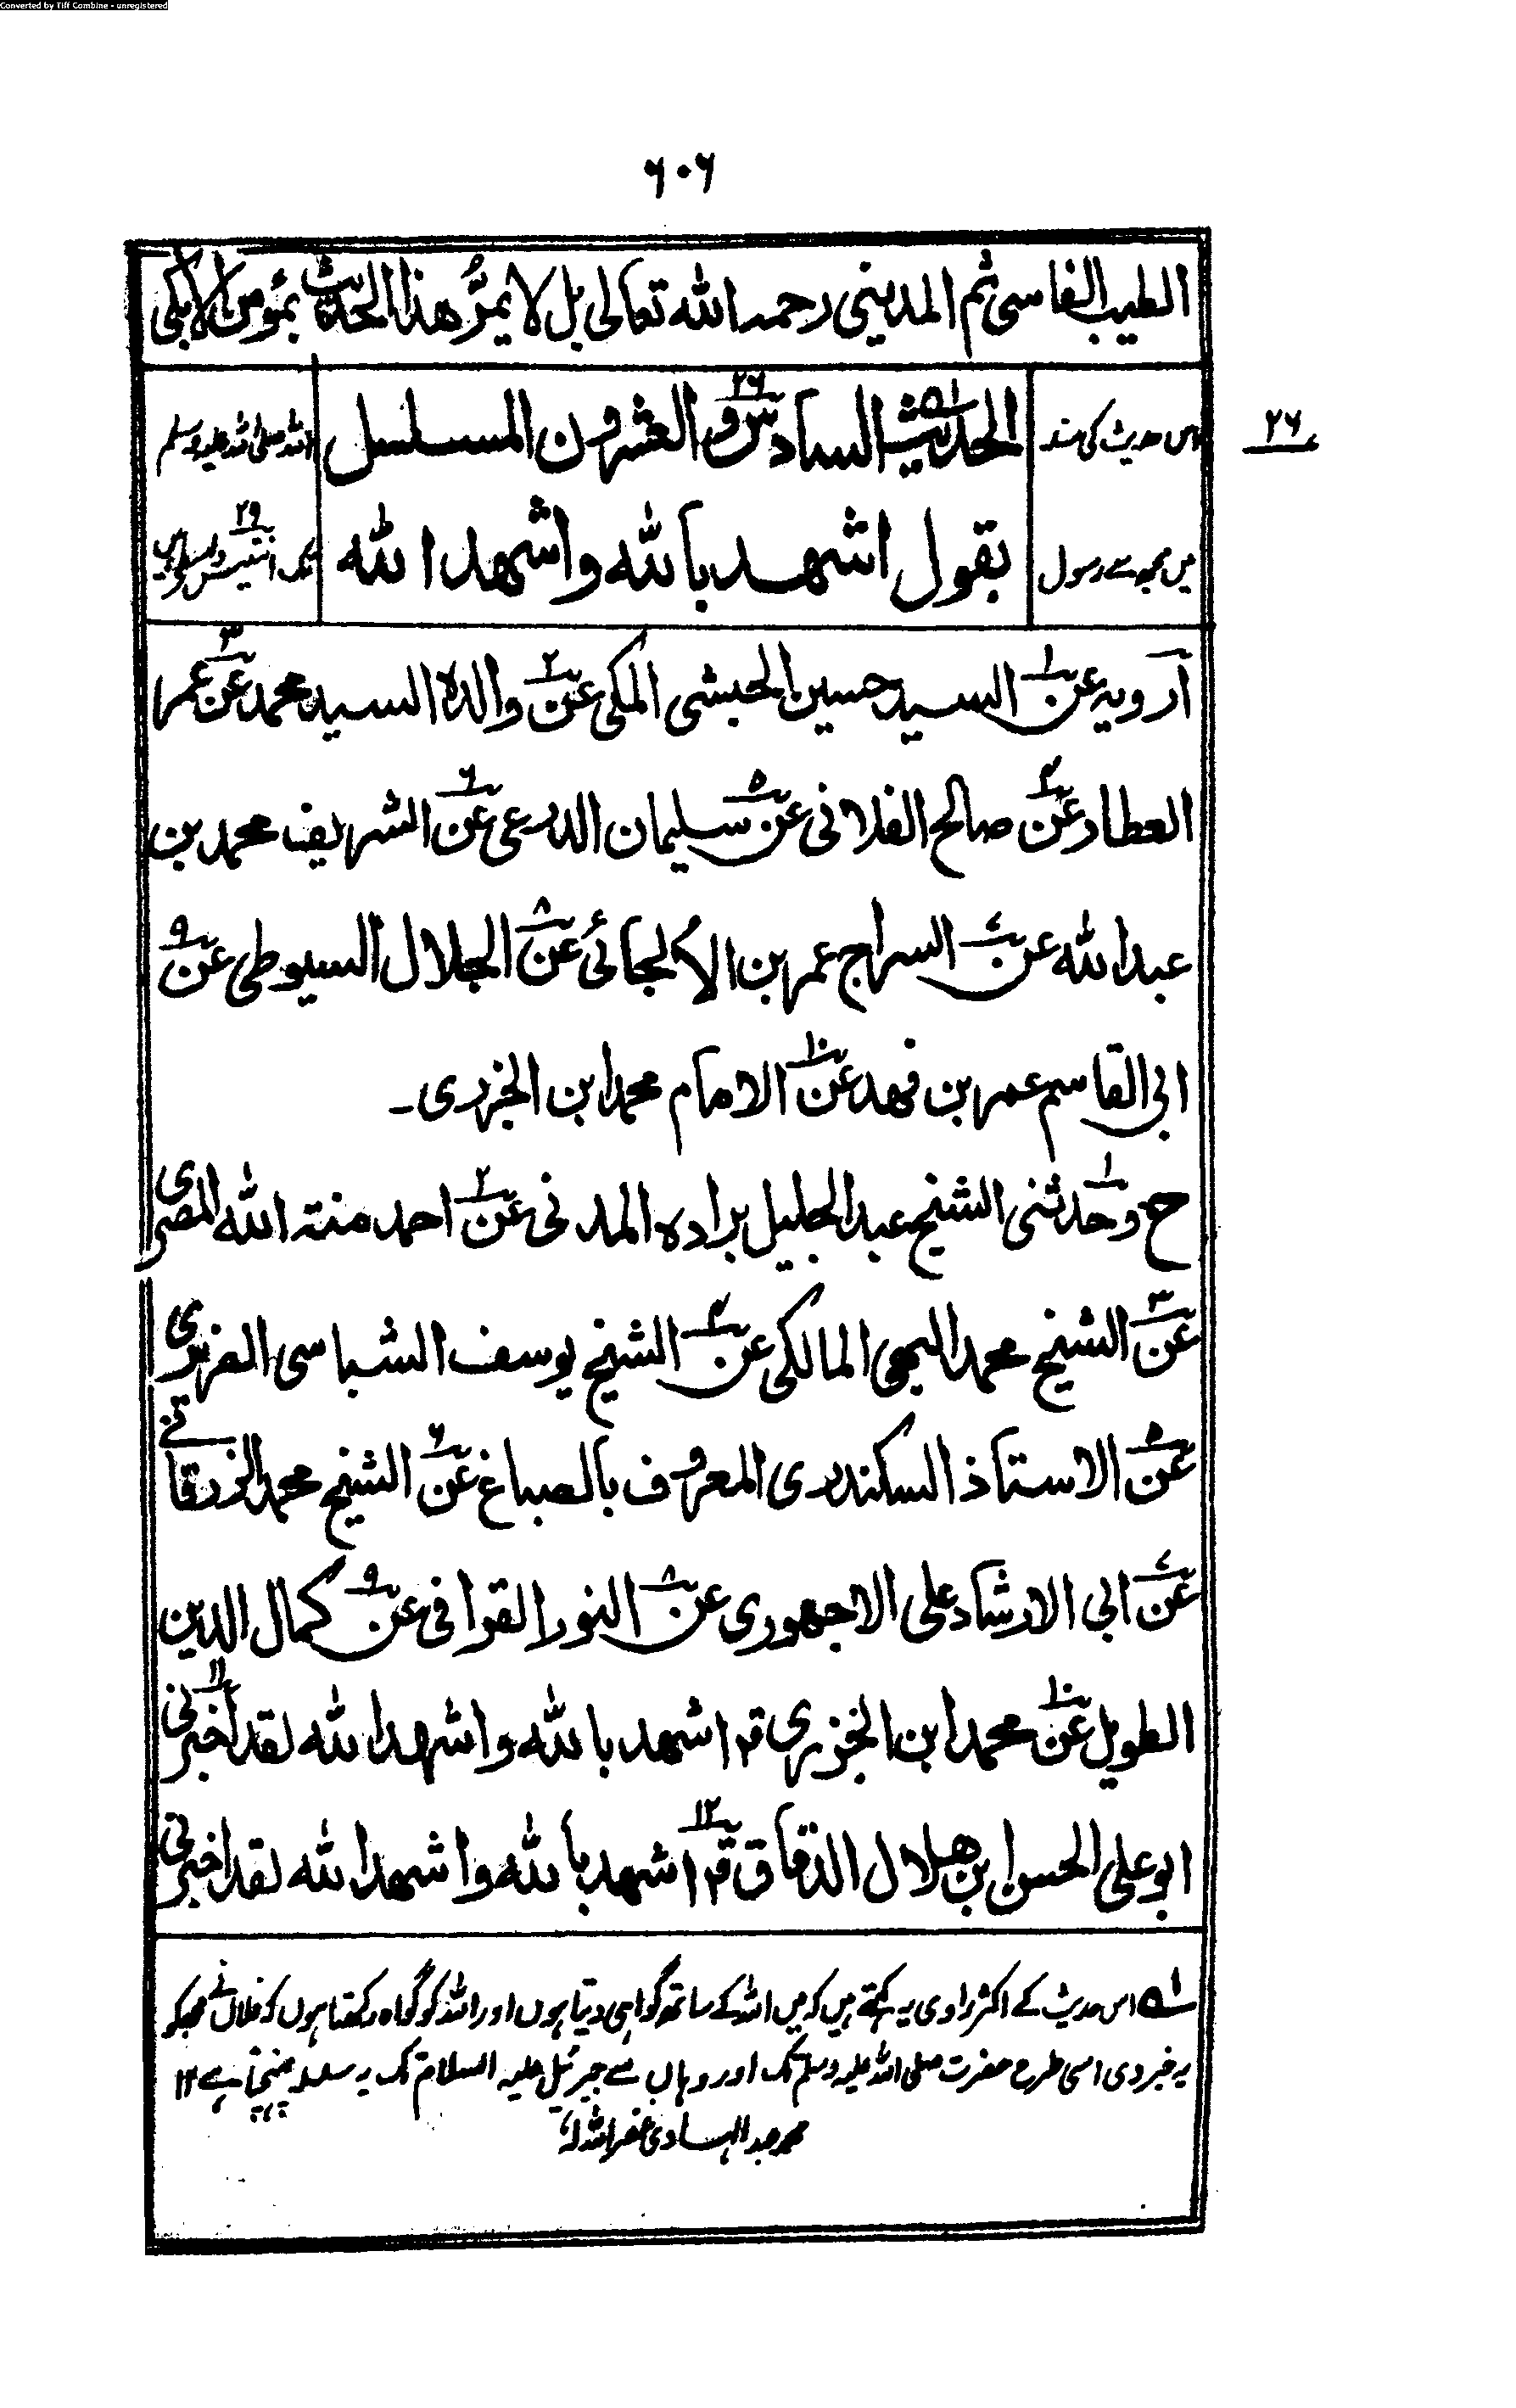 Converted by Tiff Combine - unregistered
٦٠٦
الطیب الفاسی ثم المدینی رحمه الله تعالی بل لا یمرُّ هذا الحدیث بمؤمن الا بکی
اس حدیث کی سند
میں مجھ سے رسول
الحدیث السادس والعشرون المسلسل
بقول اشهد بالله واشهد الله
اللہ صلی اللہ علیہ وسلم
تک انتیس
٢٦
آرویه عن السید حسین الحبشی المکی عن والده السید محمد عن عمر
العطار عن صالح الفلانی عن سلیمان الدرعی عن الشریف محمد بن
عبدالله عن السراج عمر بن الالجائی عن الجلال السیوطی عن
ابی القاسم عمر بن فهد عن الامام محمد ابن الجزری ۔
ح وحدثنی الشیخ عبدالجلیل براده المدنی عن احمد منته الله المصری
عن الشیخ محمد البهی المالکی عن الشیخ یوسف الشباسی الضریری
عن الاستاذ السکندری المعروف بالصباغ عن الشیخ محمد الزرقانی
عن ابی الارشاد علی الاجهوری عن النور القرافی عن کمال الدین
الطویل عن محمد ابن الجزری قر اشهد بالله واشهد الله لقد اخبرنی
ابو علی الحسن بن هلال الدقاق قر اشهد بالله واشهد الله لقد اخبرنی
۵۱ اس حدیث کے اکثر راوی یہ کہتے ہیں کہ میں اللہ کے ساتھ گواہی دیتا ہوں اور اللہ کو گواہ رکھتا ہوں کہ فلاں نے مجھکو
یہ خبر دی اسی طرح حضرت صلی اللہ علیہ وسلم تک اور وہاں سے جبرئیل علیہ السلام تک یہ سلسلہ پہنچتا ہے ۱۲
محمد عبدالہادی غفر اللہ لہٗ